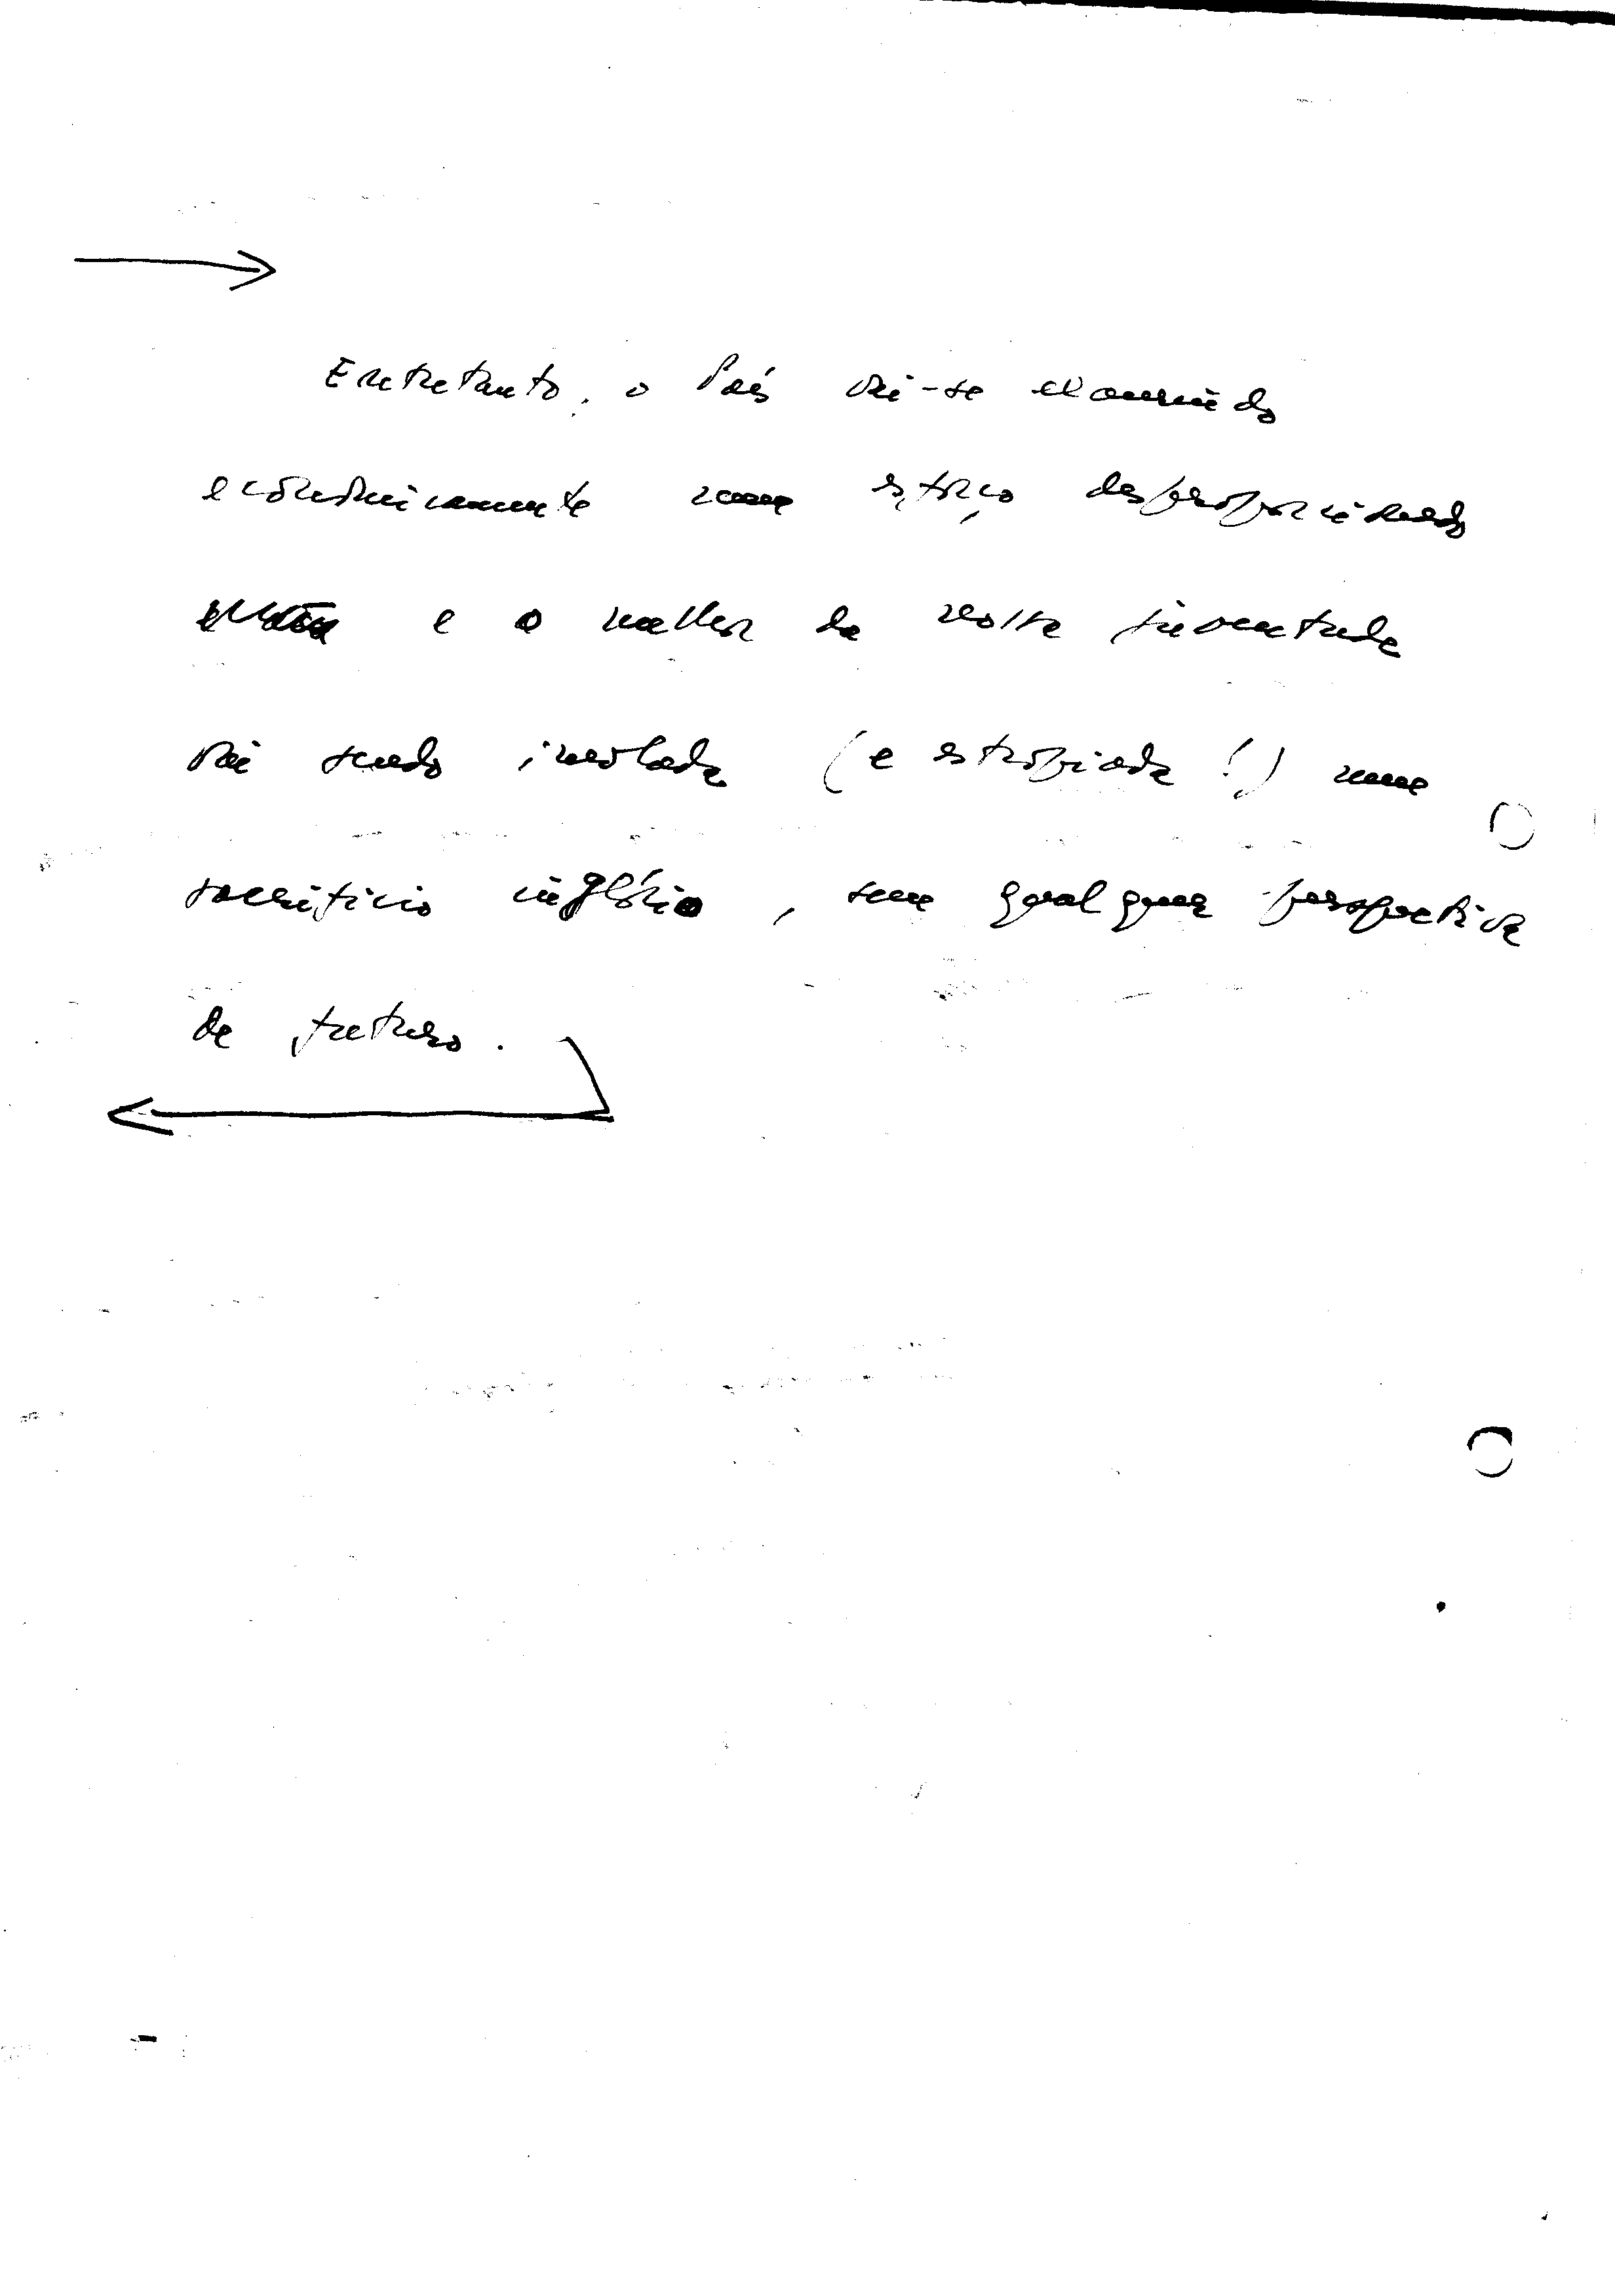 Entretanto, o País vai-se exaurindo
economicamente num esforço desproporcionado
e o melhor da nossa juventude
vai sendo imolada (e estropiada!) num
sacrifício inglório, sem qualquer perspectiva
de futuro.